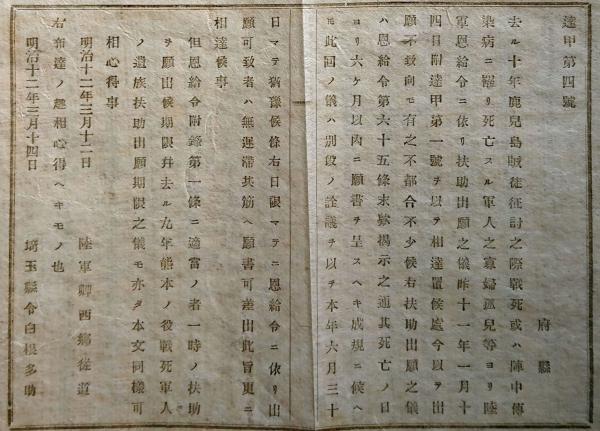 達甲第四號
府縣
去ル十年鹿兒島賊徒征討之際戰死或ハ陣中傳
染病ニ罹リ死亡スル軍人之寡婦孤兒等ヨリ陸
軍恩給令ニ依リ扶助出願之儀昨十一年一月十
四日附達甲第一號ヲ以テ相達置候處今以テ出
願不致向モ有之不都合不少候右扶助出願之儀
ハ恩給令第六十五條末欵揭示之通其死亡ノ日
ヨリ六ケ月以內ニ願書ヲ呈スヘキ成規ニ候ヘ
𪜈此回ノ儀ハ別段ノ詮議ヲ以テ本年六月三十
日マテ猶豫候條右日限マテニ恩給令ニ依リ出
願可致者ハ無遲滯其筋ヘ願書可差出此旨更ニ
相達候事
但恩給令附錄第一條ニ適當ノ者一時ノ扶助
ヲ願出候期限幷去ル九年熊本ノ役戰死軍人
ノ遺族扶助出願期限之儀モ亦タ本文同樣可
相心得事
明治十二年三月十二日
陸軍卿西鄕從道
右布達ノ趣相心得ヘキモノ也
明治十二年三月十四日
埼玉縣令白根多助